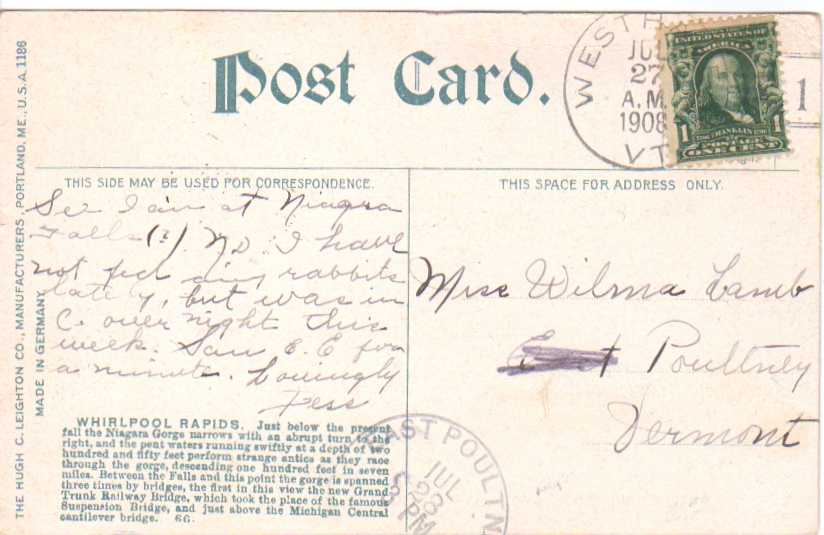 Post Card.
WESTH
JUL
27
A.M.
1908
VT.
1
UNITED STATES OF
AMERICA
1
POSTAGE
ONE CENT
THE HUGH C. LEIGHTON CO., MANUFACTURERS, PORTLAND, ME., U.S.A. 1186
MADE IN GERMANY.
THIS SIDE MAY BE USED FOR CORRESPONDENCE.
See I am at Niagra
Falls (?) No I have
not fed any rabbits
lately, but was in
C. over night this
week. Saw E. E for
a minute. Lovingly
Tess
WHIRLPOOL RAPIDS. Just below the present
fall the Niagara Gorge narrows with an abrupt turn to the
right, and the pent waters running swiftly at a depth of two
hundred and fifty feet perform strange antics as they race
through the gorge, descending one hundred feet in seven
miles. Between the Falls and this point the gorge is spanned
three times by bridges, the first in this view the new Grand
Trunk Railway Bridge, which took the place of the famous
Suspension Bridge, and just above the Michigan Central
cantilever bridge. 66.
THIS SPACE FOR ADDRESS ONLY.
Miss Wilma Lamb
East Poultney
Vermont
EAST POULTN
JUL
28
PM